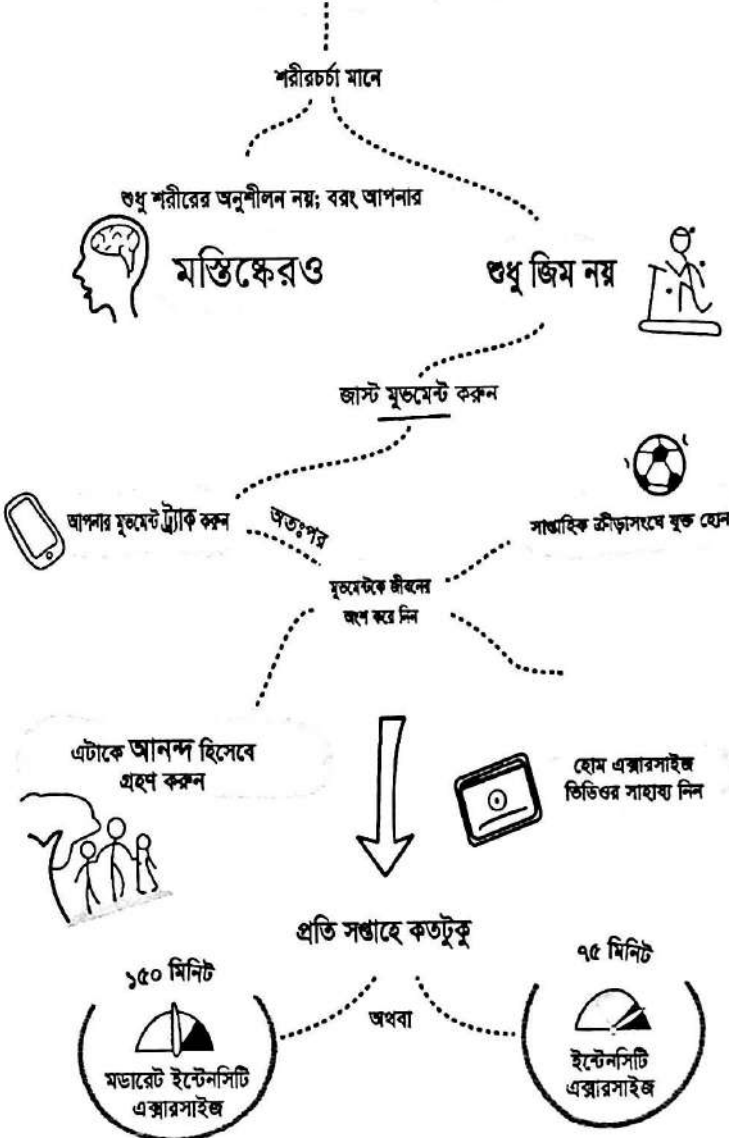 শরীরচর্চা মানে
শুধু শরীরের অনুশীলন নয়; বরং আপনার
মস্তিষ্কেরও
শুধু জিম নয়
জাস্ট মুভমেন্ট করুন
আপনার মুভমেন্ট ট্র্যাক করুন
অতঃপর
সাপ্তাহিক ক্রীড়াসংঘে যুক্ত হোন
মুভমেন্টকে জীবনের
অংশ করে নিন
এটাকে আনন্দ হিসেবে
গ্রহণ করুন
হোম এক্সারসাইজ
ভিডিওর সাহায্য নিন
প্রতি সপ্তাহে কতটুকু
১৫০ মিনিট
মডারেট ইন্টেনসিটি
এক্সারসাইজ
অথবা
৭৫ মিনিট
ইন্টেনসিটি
এক্সারসাইজ